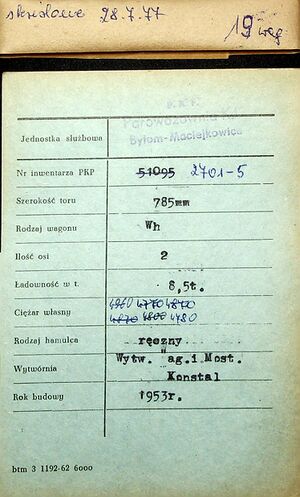 skreślono 28.7.77
19 węg
P.K.P.
Parowozownia
Bytom-Maciejkowice
Jednostka służbowa
Nr inwentarza PKP 51095 2701-5
Szerokość toru 785mm
Rodzaj wagonu Wh
Ilość osi 2
Ładowność w t. 8,5t.
Ciężar własny 4870 4800 4780
Rodzaj hamulca ręczny
Wytwórnia Wytw. Wag.i Most.
Konstal
Rok budowy 1953r.
btm 3 1192-62 6000